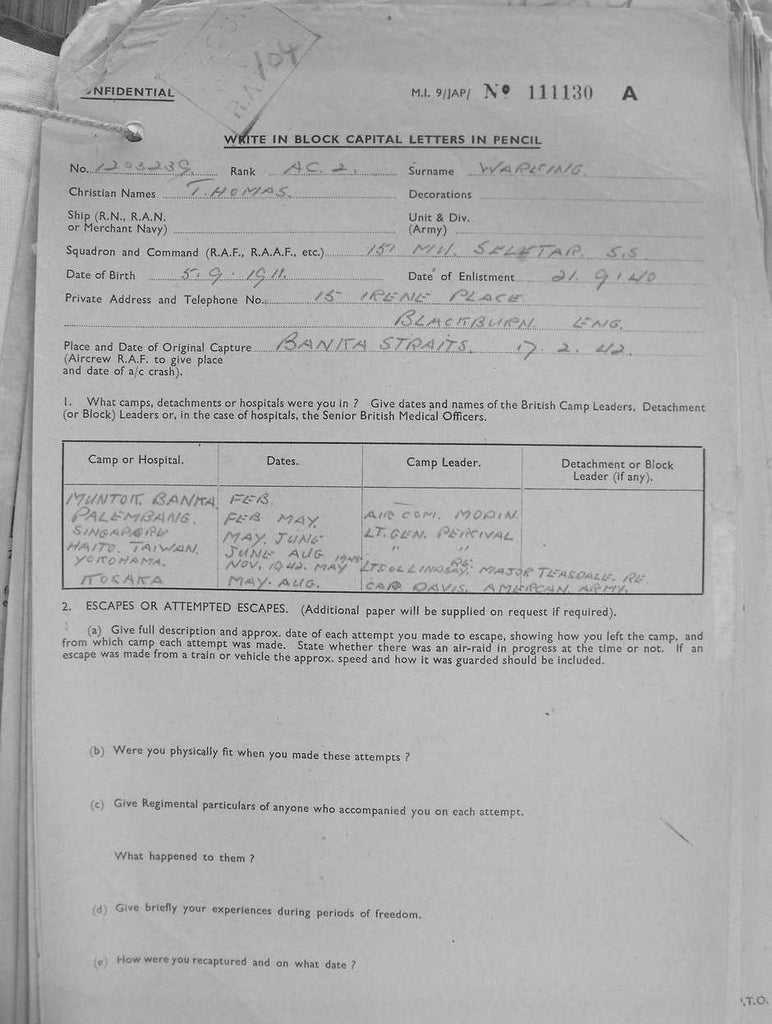 104
NFIDENTIAL
M.I. 9/JAP/ Nº 111130 A
WRITE IN BLOCK CAPITAL LETTERS IN PENCIL
No. 1203239 Rank AC. 2. Surname WAREING.
Christian Names THOMAS. Decorations
Ship (R.N., R.A.N. Unit & Div.
or Merchant Navy) (Army)
Squadron and Command (R.A.F., R.A.A.F., etc.) 151 MU. SELETAR. S.S.
Date of Birth 5. 9. 1911. Date of Enlistment 21. 9. 40
Private Address and Telephone No. 15 IRENE PLACE
BLACKBURN. ENG.
Place and Date of Original Capture BANKA STRAITS. 17. 2. 42.
(Aircrew R.A.F. to give place
and date of a/c crash).
1. What camps, detachments or hospitals were you in ? Give dates and names of the British Camp Leaders, Detachment
(or Block) Leaders or, in the case of hospitals, the Senior British Medical Officers.
Camp or Hospital. Dates. Camp Leader. Detachment or Block
Leader (if any).
MUNTOK BANKA. FEB.
PALEMBANG. FEB MAY. AIR COM. MODIN.
SINGAPORE MAY. JUNE LT. GEN. PERCIVAL
HAITO. TAIWAN. JUNE AUG " "
YOKOHAMA. NOV. 1942. MAY 1945 LT COL LINDSAY. RE. MAJOR TEASDALE. RE.
KOSAKA MAY. AUG. CAP DAVIS. AMERCAN ARMY.
2. ESCAPES OR ATTEMPTED ESCAPES. (Additional paper will be supplied on request if required).
(a) Give full description and approx. date of each attempt you made to escape, showing how you left the camp, and
from which camp each attempt was made. State whether there was an air-raid in progress at the time or not. If an
escape was made from a train or vehicle the approx. speed and how it was guarded should be included.
(b) Were you physically fit when you made these attempts ?
(c) Give Regimental particulars of anyone who accompanied you on each attempt.
What happened to them ?
(d) Give briefly your experiences during periods of freedom.
(e) How were you recaptured and on what date ?
.T.O.